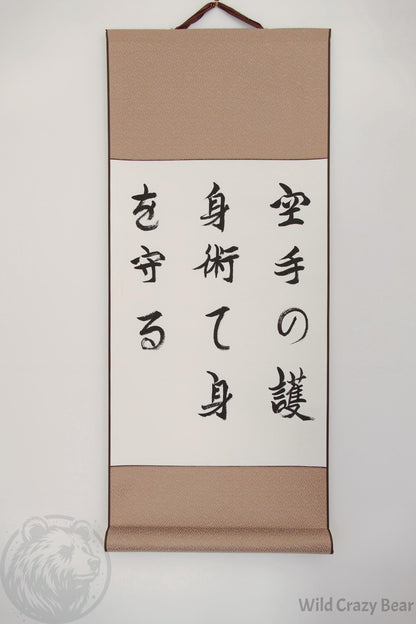 空手の護
身術て身
を守る
Wild Crazy Bear